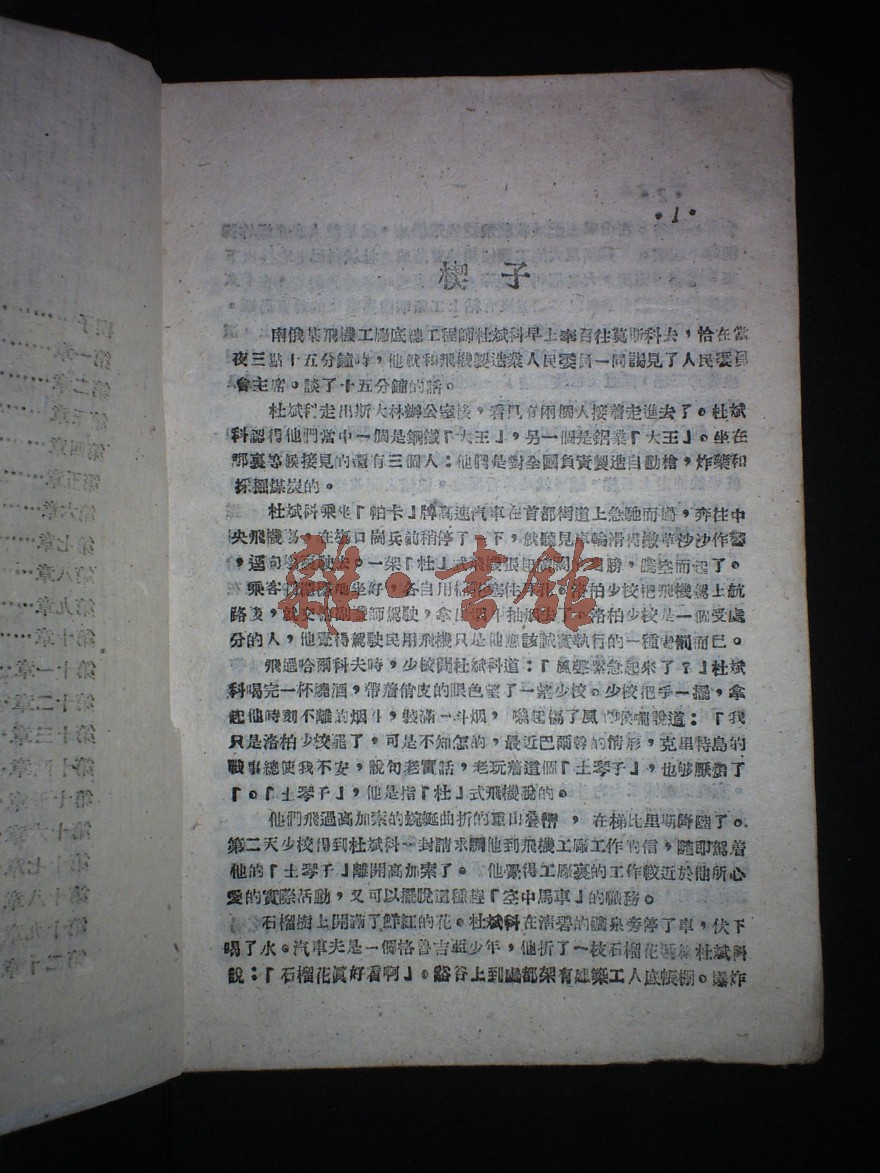 ·1·
楔子
南俄某飛機工廠底總工程師杜斌科早上奉召往莫斯科去，恰在當
夜三點十五分鐘時，他就和飛機製造業人民委員一同謁見了人民委員
會主席。談了十五分鐘的話。
杜斌科走出斯大林辦公室後，看見有兩個人接着走進去了。杜斌
科認得他們當中一個是鋼鐵『大王』，另一個是鋁業『大王』。坐在
那裏等候接見的還有三個人：他們是對全國負責製造自動槍，炸藥和
採掘煤炭的。
杜斌科乘坐『帕卡』牌高速汽車在首都街道上急馳而過，奔往中
央飛機場，在場口閽兵前稍停了一下，就聽見車輪滑得撒草沙沙作響
，逕向場駛去。一架『杜』式飛機張起兩個翅膀，騰空而起了。
乘客們坐好，各自用棉花塞住耳孔。洛柏少校把飛機駕上航
路後，就交給副機師駕駛，拿出烟斗抽烟去了。洛柏少校是一個受處
分的人，他覺得駕駛民用飛機只是他應該誠實執行的一種懲罰而已。
飛過哈爾科夫時，少校問杜斌科道：『風聲緊急起來了？』杜斌
科喝完一杯燒酒，帶着俏皮的眼色望了一望少校。少校把手一擺，拿
起他時刻不離的烟斗，裝滿一斗烟，嗡起傷了風的喉嚨說道：『我
只是洛柏少校罷了。可是不知怎的，最近巴爾幹的情形，克里特島的
戰事總使我不安，說句老實話，老玩着這個『土琴子』，也够厭膩了
『。『土琴子』，他是指『杜』式飛機說的。
他們飛過高加索的蜿蜒曲折的重山疊巒，在梯比里斯降陸了。
第二天少校得到杜斌科一封請求調他到飛機工廠工作的信，隨即駕着
他的『土琴子』離開高加索了。他覺得工廠裏的工作較近於他所心
愛的實際活動，又可以擺脫這種趕『空中馬車』的職務。
石榴樹上開滿了鮮紅的花。杜斌科在清碧的礦泉旁停了車，伏下
喝了水。汽車夫是一個格魯吉亞少年，他折了一枝石榴花遞給杜斌科
說：『石榴花眞好看啊』。谿谷上到處都架有建築工人底帳棚。爆炸
雜·書館
楔子
第一章
第二章
第三章
第四章
第五章
第六章
第七章
第八章
第九章
第十章
第十一章
第十二章
第十三章
第十四章
第十五章
第十六章
第十七章
第十八章
第十九章
第二十章